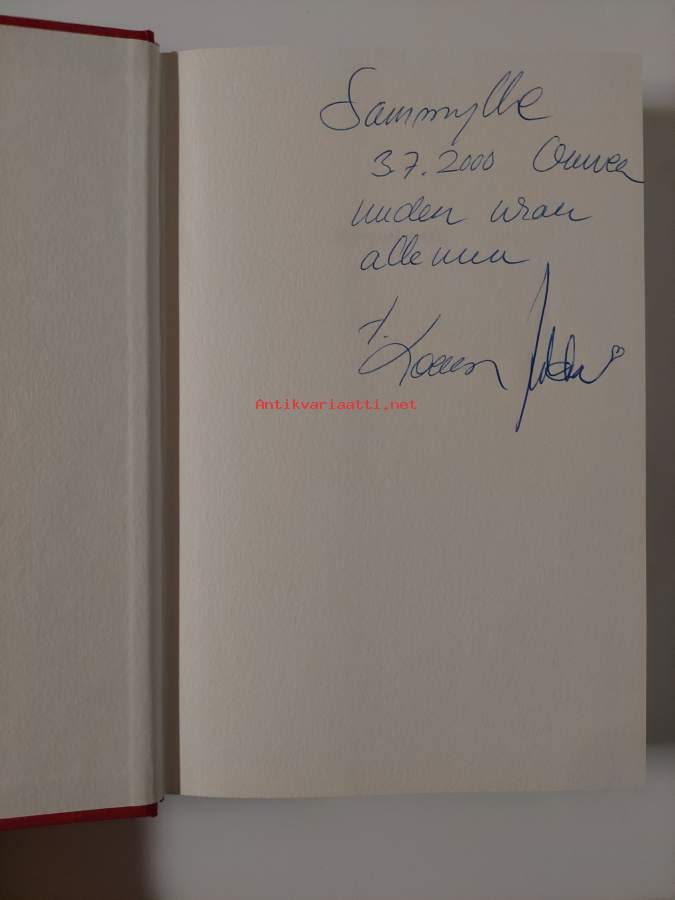 Sammylle
3.7.2000 Onnea
uuden uran
alkuun
t.
Antikvariaatti.net